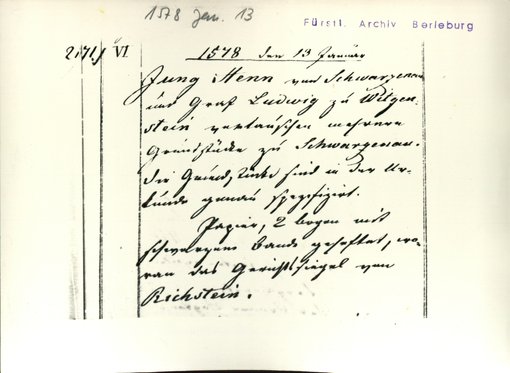 1578 Jan. 13
Fürstl. Archiv Berleburg
2171.) VI. 1578 den 13 Januar
Jung Henn von Schwarzenau
und Graf Ludwig zu Witgen-
stein vertauschen mehrere
Grundstücke zu Schwarzenau.
Die Grundstücke sind in der Ur-
kunde genau spezifizirt.
Papier, 2 bogen mit
schwarzem Bande geheftet, wo-
ran das Gerichtssiegel von
Richstein.